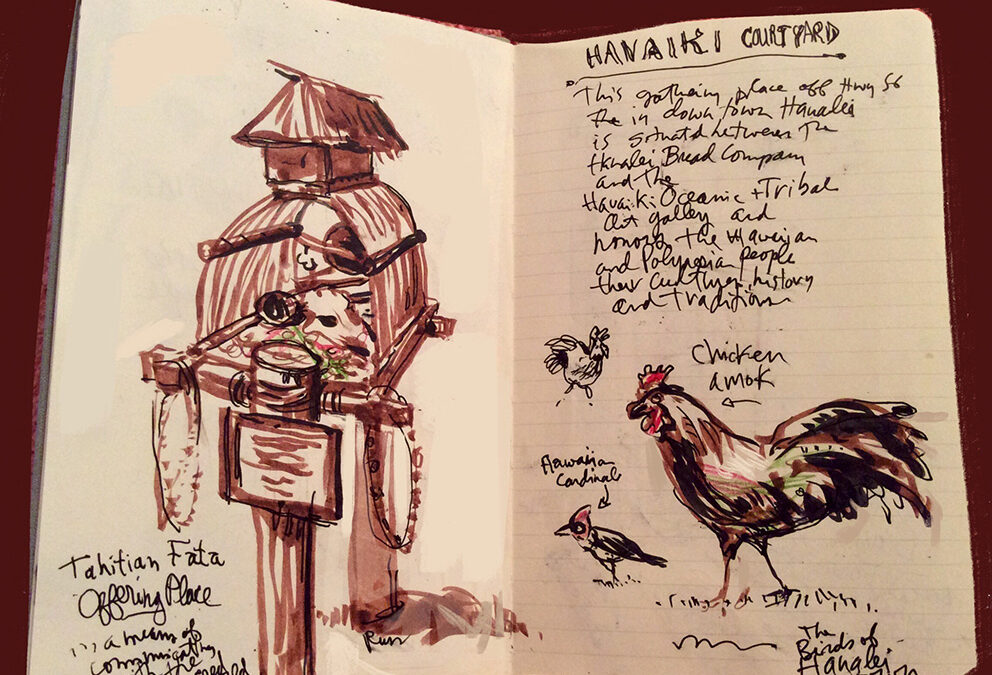 Tahitian Fata
Offering Place
is a means of
communicating
the
Run
HAVAIKI COURTYARD
This gathering place off Hwy 56
in downtown Hanalei
is situated between The
Hanalei Bread Company
and the
Havaiki Oceanic + Tribal
Art gallery and
honors the Hawaiian
and Polynesian people
their culture, history
and traditions
Chicken
amok
Hawaiian
Cardinal
The
Birds of
Hanalei